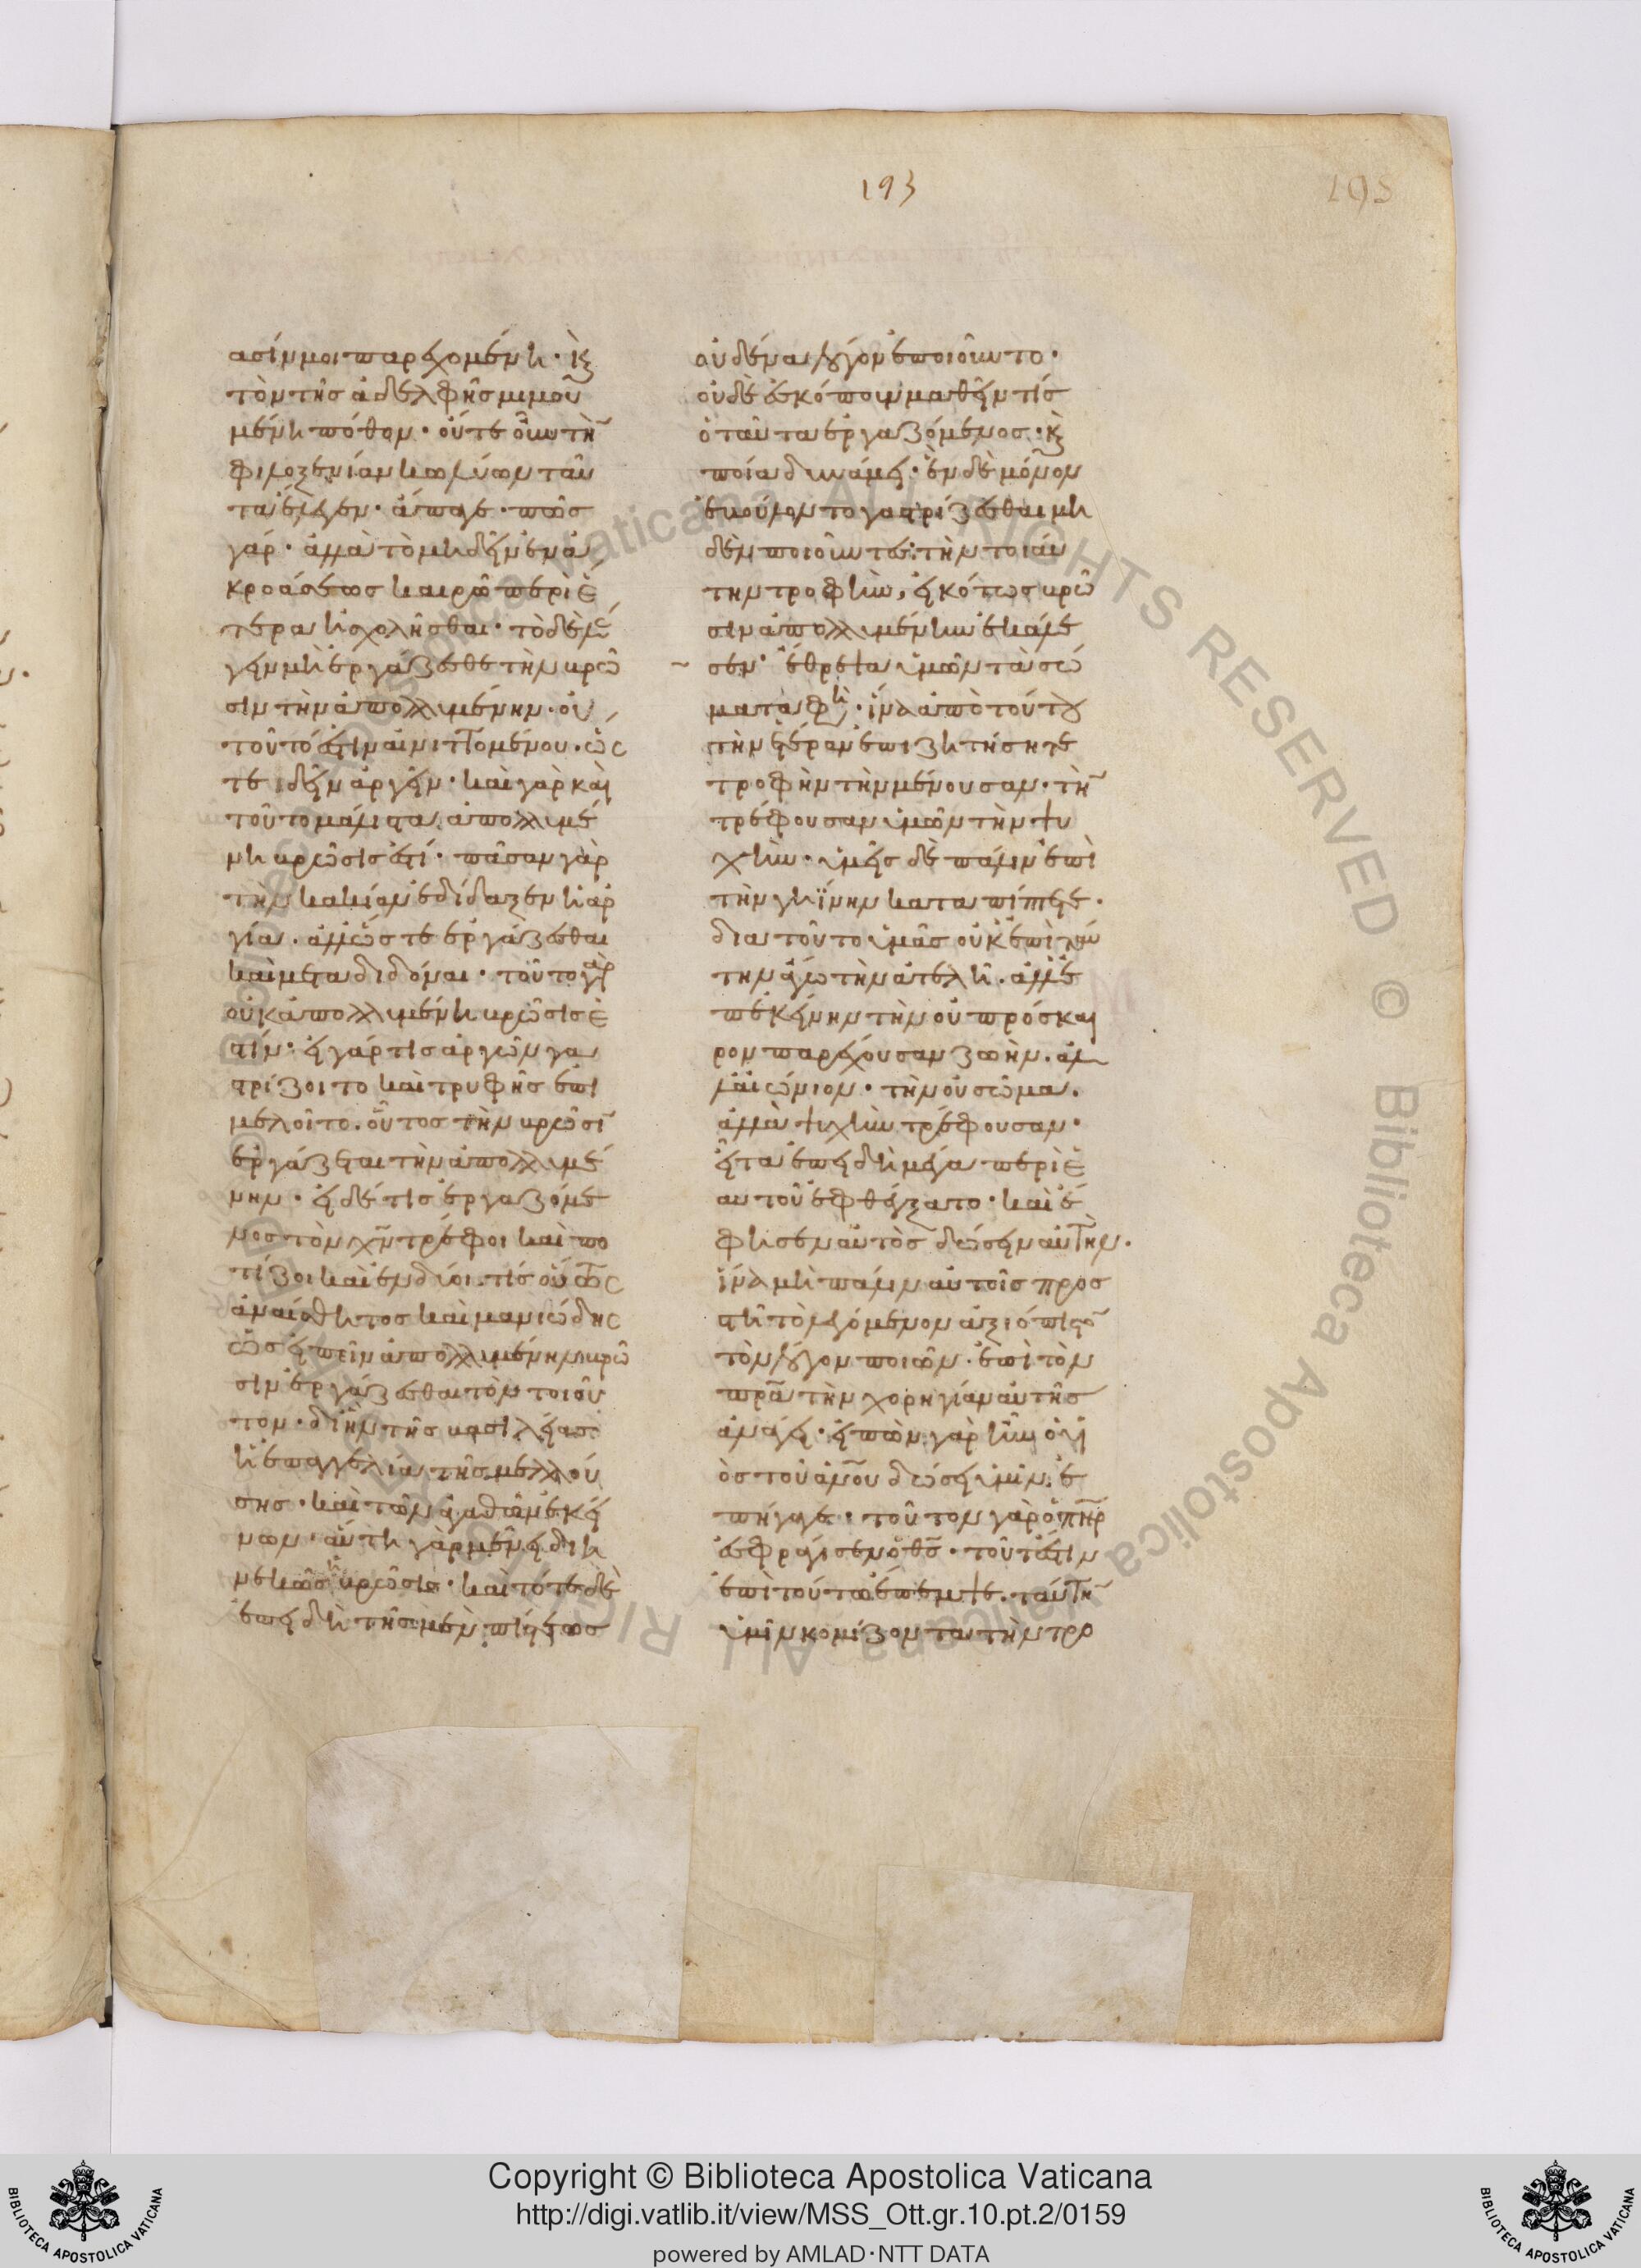 193
195
ασίν μοι παρεχομένη· κ̀
τὸν τῆς ἀδελφῆς μιμου
μένη πόθον· οὔτε οὖν τὴν
φιλοξενίαν κωλύων ταῦ
τα ἔλεγεν· ἄπαγε· πῶς
γάρ· ἀλλὰ τὸ μὴ δεῖν ἐν ἀ
κροάσεως καιρῶ περὶ ἕ
τερα ἠσχολῆσθαι· τὸ δὲ λέ
γειν μὴ ἐργάζεσθε τὴν βρῶ
σιν τὴν ἀπολλυμένην· οὐ
τοῦτό ἐστιν αἰνιττομένου· ὥς
τε δεῖν ἀργεῖν· καὶ γὰρ καὶ
τοῦτο μάλιστα ἀπολλυμέ
νη βρῶσίς ἐστι· πᾶσαν γὰρ
τὴν κακίαν ἐδίδαξεν ἡ ἀρ
γία· ἀλλ' ὥστε ἐργάζεσθαι
καὶ μεταδιδόναι· τοῦτο γὰρ
οὐκ ἀπολλυμένη βρῶσις ἐ
στίν· εἰ γάρ τις ἀργῶν γα
στρίζοιτο καὶ τρυφῆς ἐπι
μελοῖτο· οὗτος τὴν βρῶσιν
ἐργάζεται τὴν ἀπολλυμέ
νην· εἰ δέ τις ἐργαζόμε
νος τὸν χν̄ τρέφοι καὶ πο
τίζοι καὶ ἐνδύοι· τίς οὕτως
ἀναίσθητος καὶ μανιώδης
ὡς εἰπεῖν ἀπολλυμένην βρῶ
σιν ἐργάζεσθαι τὸν τοιοῦ
τον· δι' ἣν τῆς βασιλείας
ἡ ἐπαγγελία τῆς μελλού
σης· καὶ τῶν ἀγαθῶν ἐκεί
νων· αὕτη γὰρ μένει διη
νεκῶς ἡ βρῶσις· καὶ τότε δὲ
ἐπειδὴ τῆς μὲν πίστεως
οὐδένα λόγον ἐποιοῦντο·
οὐδὲ ἐσκόπουν μαθεῖν τίς
ὁ ταῦτα ἐργαζόμενος· κ̀
ποία δυνάμει· ἓν δὲ μόνον
ἐβούλοντο γαστρίζεσθαι μη
δὲν ποιοῦντες· τὴν τοιαύ
την τροφὴν, εἰκότως βρῶ
σιν ἀπολλυμένην ἐκάλε
σεν· ἔθρεψα ὑμῶν τὰ σώ
ματα φη· ἵνα ἀπὸ τούτου
τὴν ἑτέραν ἐπιζητήσητε
τροφὴν τὴν μένουσαν· τὴν
τρέφουσαν ὑμῶν τὴν ψυ
χήν· ὑμεῖς δὲ πάλιν ἐπὶ
τὴν γηΐνην κατατρέχετε·
δια τοῦτο ὑμᾶς οὐκ ἐπὶ ταύ
την ἄγω τὴν ἀτελῆ· ἀλλ' ἐ
π' ἐκείνην τὴν οὐ πρόσκαι
ρον παρέχουσαν ζωὴν· ἀλ
λ' αἰώνιον· τὴν οὐ σῶμα·
ἀλλὰ ψυχὴν τρέφουσαν·
εἶτα ἐπειδὴ μέγα περὶ ἑ
αυτοῦ ἐφθέγξατο· καὶ ἔ
φησεν αὐτὸς δώσειν αὐτήν·
ἵνα μὴ πάλιν αὐτοῖς προς
στῆ τὸ λεγόμενον ἀξιόπιστον
τὸν λόγον ποιῶν· ἐπὶ τὸν
πρα τὴν χορηγίαν αὐτῆς
ἀνάγει· εἰπὼν γὰρ ἣν ὁ υἱ
ὸς τοῦ ανου δώσει ὑμῖν· ἐ
πήγαγε· τοῦτον γὰρ ὁ πηρ
ἐσφράγισεν ὁ θς· τοῦτ' ἔστιν
ἐπὶ τούτω ἔπεμψε· ταύτην
ὑμῖν κομίζοντα τὴν τρο
Copyright © Biblioteca Apostolica Vaticana
http://digi.vatlib.it/view/MSS_Ott.gr.10.pt.2/0159
powered by AMLAD·NTT DATA
BIBLIOTECA APOSTOLICA VATICANA
BIBLIOTECA APOSTOLICA VATICANA